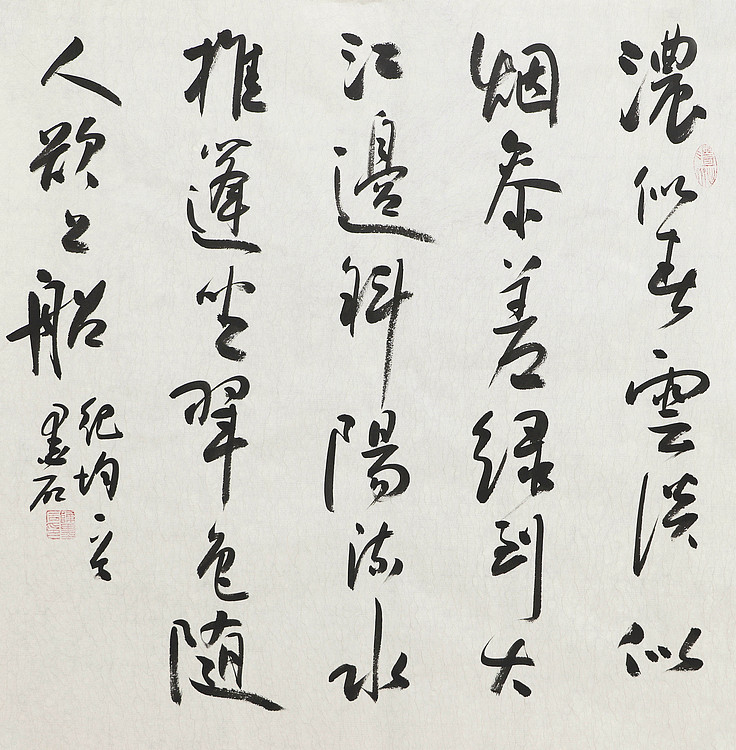 濃似春雲淡似
烟参差绿到大
江邊斜陽流水
推篷坐翠色随
人欲上船
纪昀一首
墨石